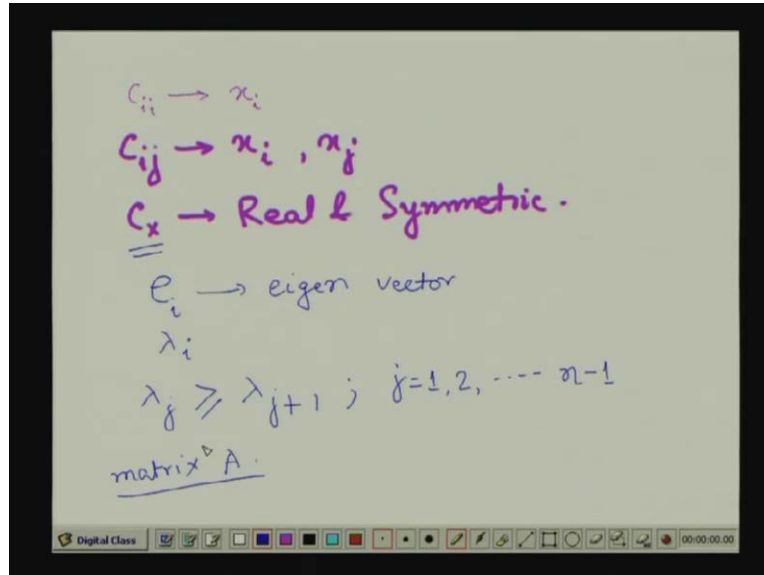 C_ii → x_i
C_ij → x_i , x_j
C_x → Real & Symmetric.
e_i → eigen vector
λ_i
λ_j ≥ λ_{j+1} ; j=1, 2, ---- n-1
matrix A.
Digital Class 00:00:00.00